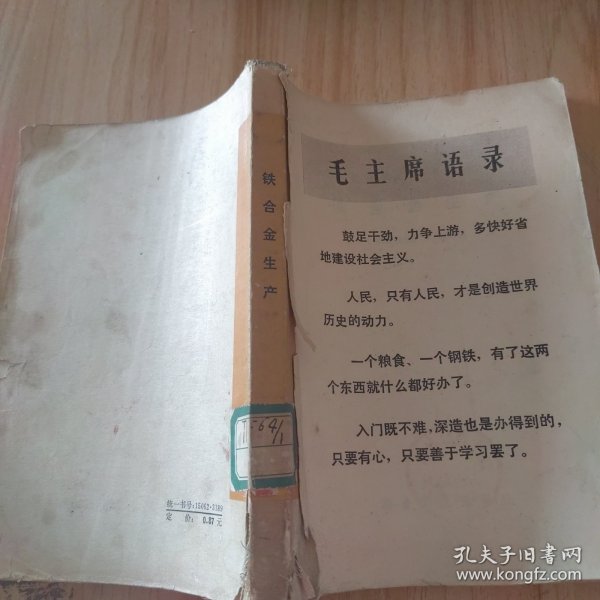 毛主席语录
鼓足干劲，力争上游，多快好省
地建设社会主义。
人民，只有人民，才是创造世界
历史的动力。
一个粮食、一个钢铁，有了这两
个东西就什么都好办了。
入门既不难，深造也是办得到的，
只要有心，只要善于学习罢了。
铁合金生产
64/1
统一书号：15062·3189
定 价： 0.87 元
孔夫子旧书网
www.kongfz.com